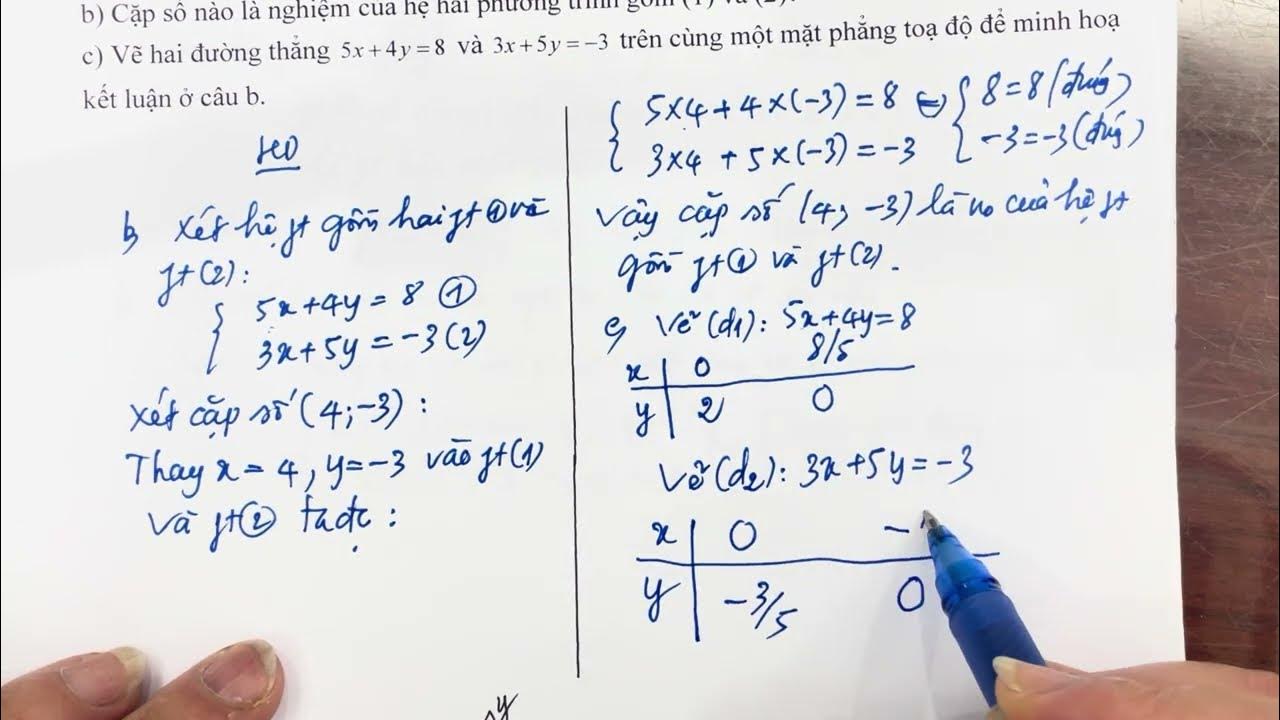 b) Cặp số nào là nghiệm của hệ hai phương trình gồm (1) và (2).
c) Vẽ hai đường thẳng 5x + 4y = 8 và 3x + 5y = −3 trên cùng một mặt phẳng toạ độ để minh hoạ
kết luận ở câu b.
b, Xét hệ pt gồm hai pt ① và
pt (2):
{ 5x + 4y = 8 ①
3x + 5y = −3 (2)
Xét cặp số (4; −3) :
Thay x = 4, y = −3 vào pt (1)
và pt ② ta đc :
{ 5×4 + 4×(−3) = 8 ⇔ { 8 = 8 (đúng)
3×4 + 5×(−3) = −3 −3 = −3 (đúng)
Vậy cặp số (4; −3) là no của hệ pt
gồm pt ① và pt (2).
c, Vẽ (d1): 5x + 4y = 8
x | 0 8/5
y | 2 0
Vẽ (d2): 3x + 5y = −3
x | 0 −
y | −3/5 0
y